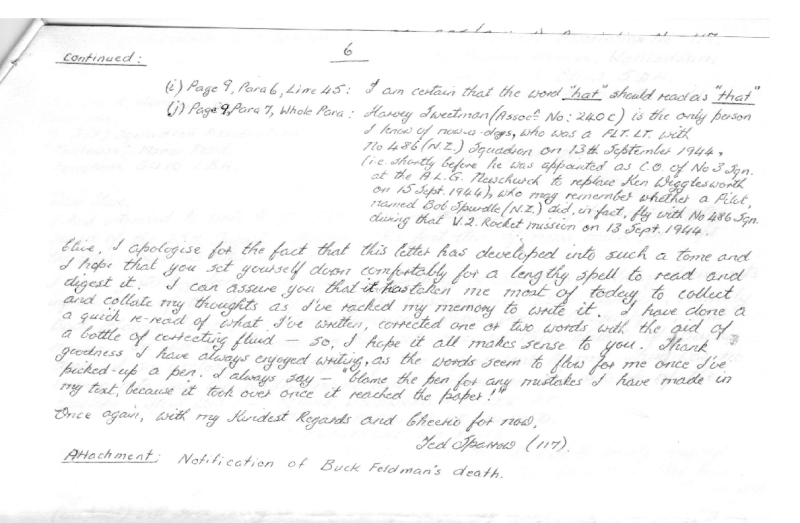 6
Continued:
(i) Page 9, Para 6, Line 45: I am certain that the word "hat" should read as "that"
(j) Page 9, Para 7, Whole Para: Harvey Sweetman (Assoc No: 240C) is the only person
I know of now-a-days, who was a FLT. LT. with
No 486 (N.Z.) Squadron on 13th September 1944,
(i.e. shortly before he was appointed as C.O. of No 3 Sqn.
at the A.L.G. Newchurch to replace Ken Wigglesworth
on 15 Sept. 1944), who may remember whether a Pilot,
named Bob Spurdle (N.Z.) did, in fact, fly with No 486 Sqn.
during that V.2. Rocket mission on 13 Sept. 1944.
Clive, I apologise for the fact that this letter has developed into such a tome and
I hope that you set yourself down comfortably for a lengthy spell to read and
digest it. I can assure you that it has taken me most of today to collect
and collate my thoughts as I've racked my memory to write it. I have done a
a quick re-read of what I've written, corrected one or two words with the aid of
a bottle of correcting fluid — so, I hope it all makes sense to you. Thank
goodness I have always enjoyed writing, as the words seem to flow for me once I've
picked-up a pen. I always say — "blame the pen for any mistakes I have made in
my text, because it took over once it reached the paper!"
Once again, with my Kindest Regards and Cheerio for now,
Ted Sparrow (117).
Attachment: Notification of Buck Feldman's death.